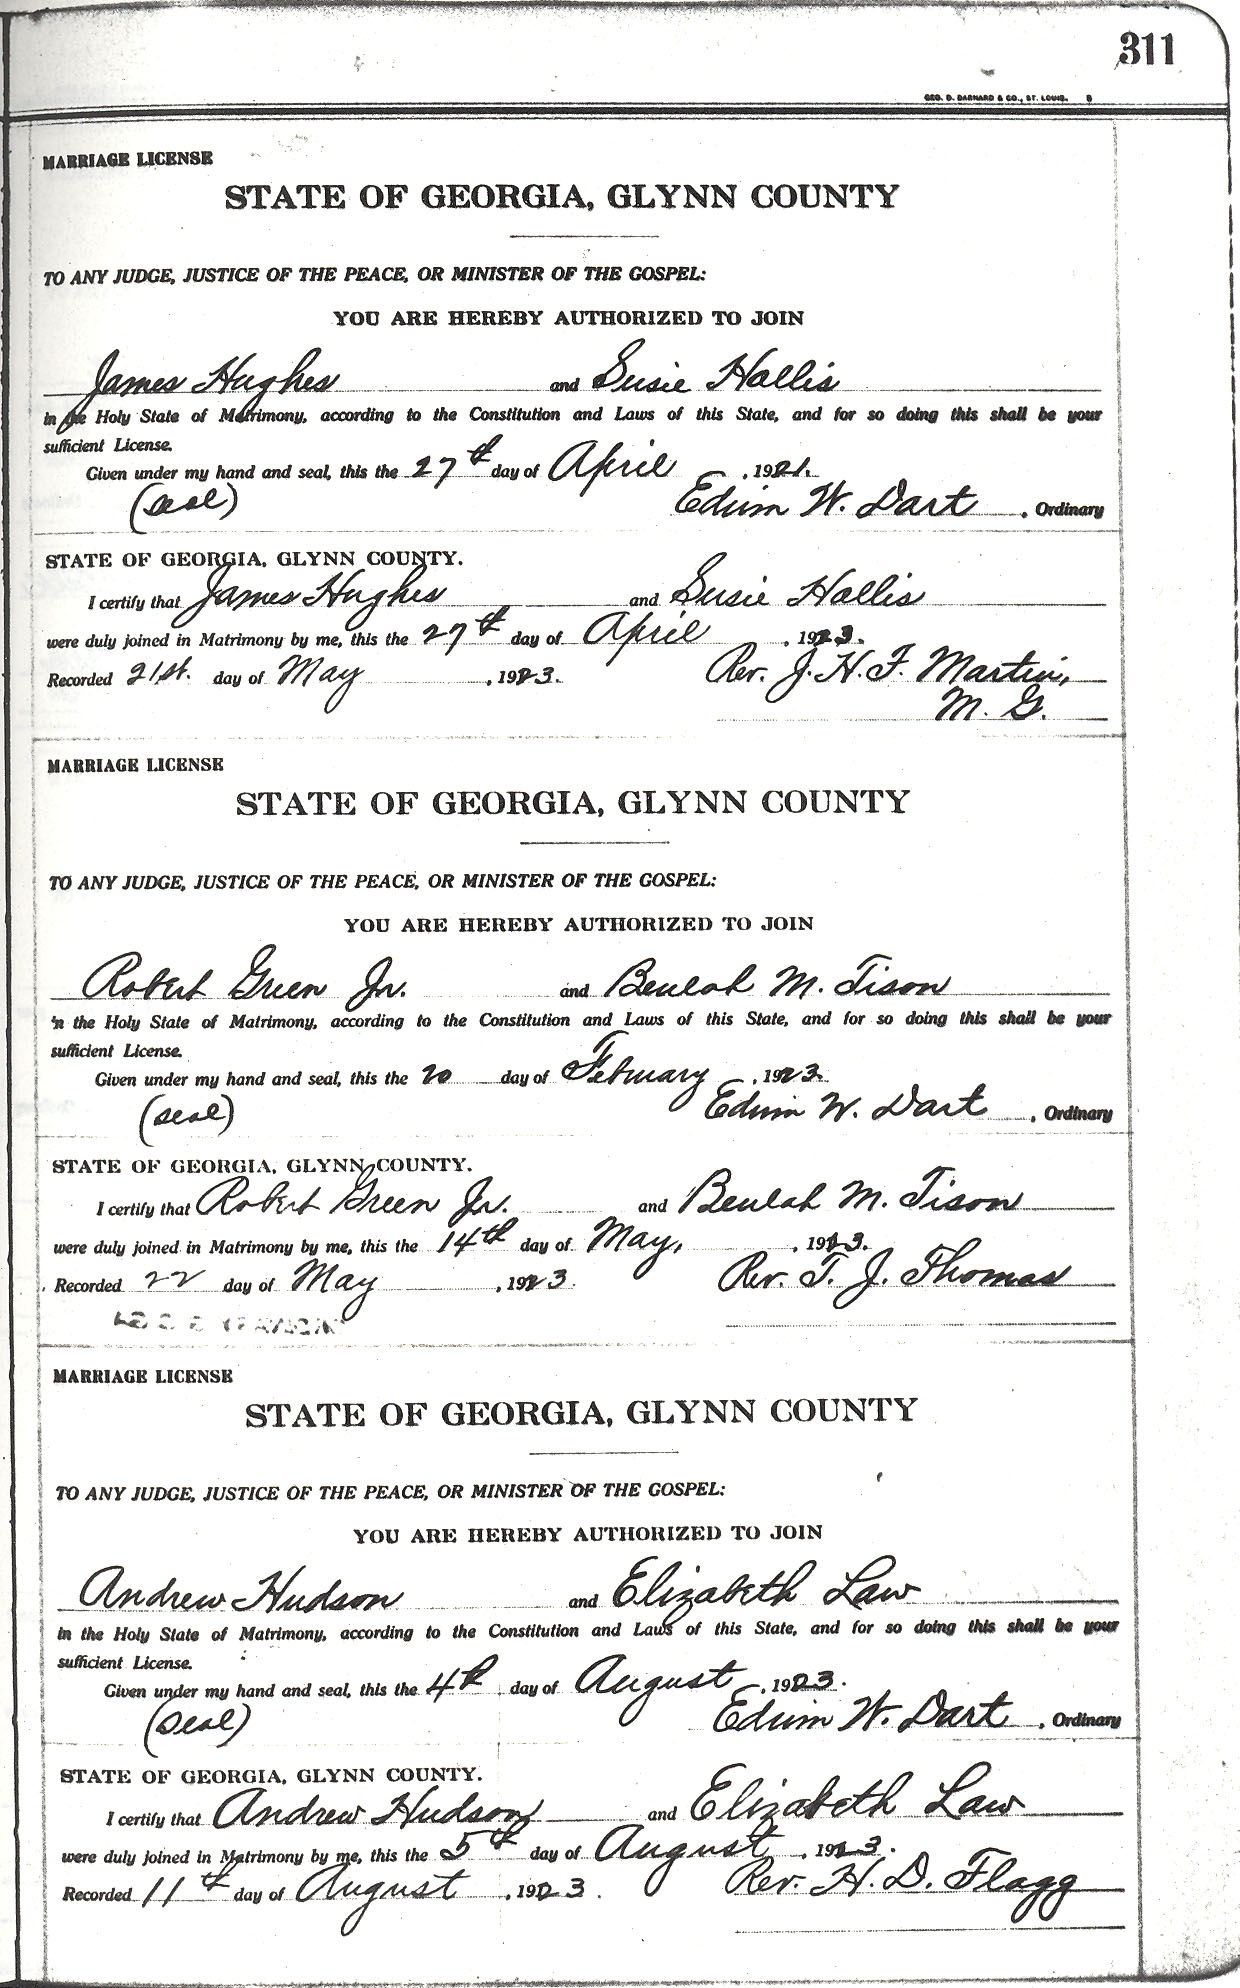 311
GEO. D. BARNARD & CO., ST. LOUIS. B
MARRIAGE LICENSE
STATE OF GEORGIA, GLYNN COUNTY
TO ANY JUDGE, JUSTICE OF THE PEACE, OR MINISTER OF THE GOSPEL:
YOU ARE HEREBY AUTHORIZED TO JOIN
James Hughes and Susie Hallis
in the Holy State of Matrimony, according to the Constitution and Laws of this State, and for so doing this shall be your
sufficient License.
Given under my hand and seal, this the 27th day of April, 1921.
(seal) Edwin W. Dart, Ordinary
STATE OF GEORGIA, GLYNN COUNTY.
I certify that James Hughes and Susie Hallis
were duly joined in Matrimony by me, this the 27th day of April, 1923.
Recorded 21st. day of May, 1923. Rev. J. H. F. Martin,
M. G.
MARRIAGE LICENSE
STATE OF GEORGIA, GLYNN COUNTY
TO ANY JUDGE, JUSTICE OF THE PEACE, OR MINISTER OF THE GOSPEL:
YOU ARE HEREBY AUTHORIZED TO JOIN
Robert Green Jr. and Beulah M. Tison
in the Holy State of Matrimony, according to the Constitution and Laws of this State, and for so doing this shall be your
sufficient License.
Given under my hand and seal, this the 20 day of February, 1923.
(seal) Edwin W. Dart, Ordinary
STATE OF GEORGIA, GLYNN COUNTY.
I certify that Robert Green Jr. and Beulah M. Tison
were duly joined in Matrimony by me, this the 14th day of May, 1923.
Recorded 22 day of May, 1923. Rev. T. J. Thomas
MARRIAGE LICENSE
STATE OF GEORGIA, GLYNN COUNTY
TO ANY JUDGE, JUSTICE OF THE PEACE, OR MINISTER OF THE GOSPEL:
YOU ARE HEREBY AUTHORIZED TO JOIN
Andrew Hudson and Elizabeth Law
in the Holy State of Matrimony, according to the Constitution and Laws of this State, and for so doing this shall be your
sufficient License.
Given under my hand and seal, this the 4th day of August, 1923.
(seal) Edwin W. Dart, Ordinary
STATE OF GEORGIA, GLYNN COUNTY.
I certify that Andrew Hudson and Elizabeth Law
were duly joined in Matrimony by me, this the 5th day of August, 1923.
Recorded 11th day of August, 1923. Rev. H. D. Flagg